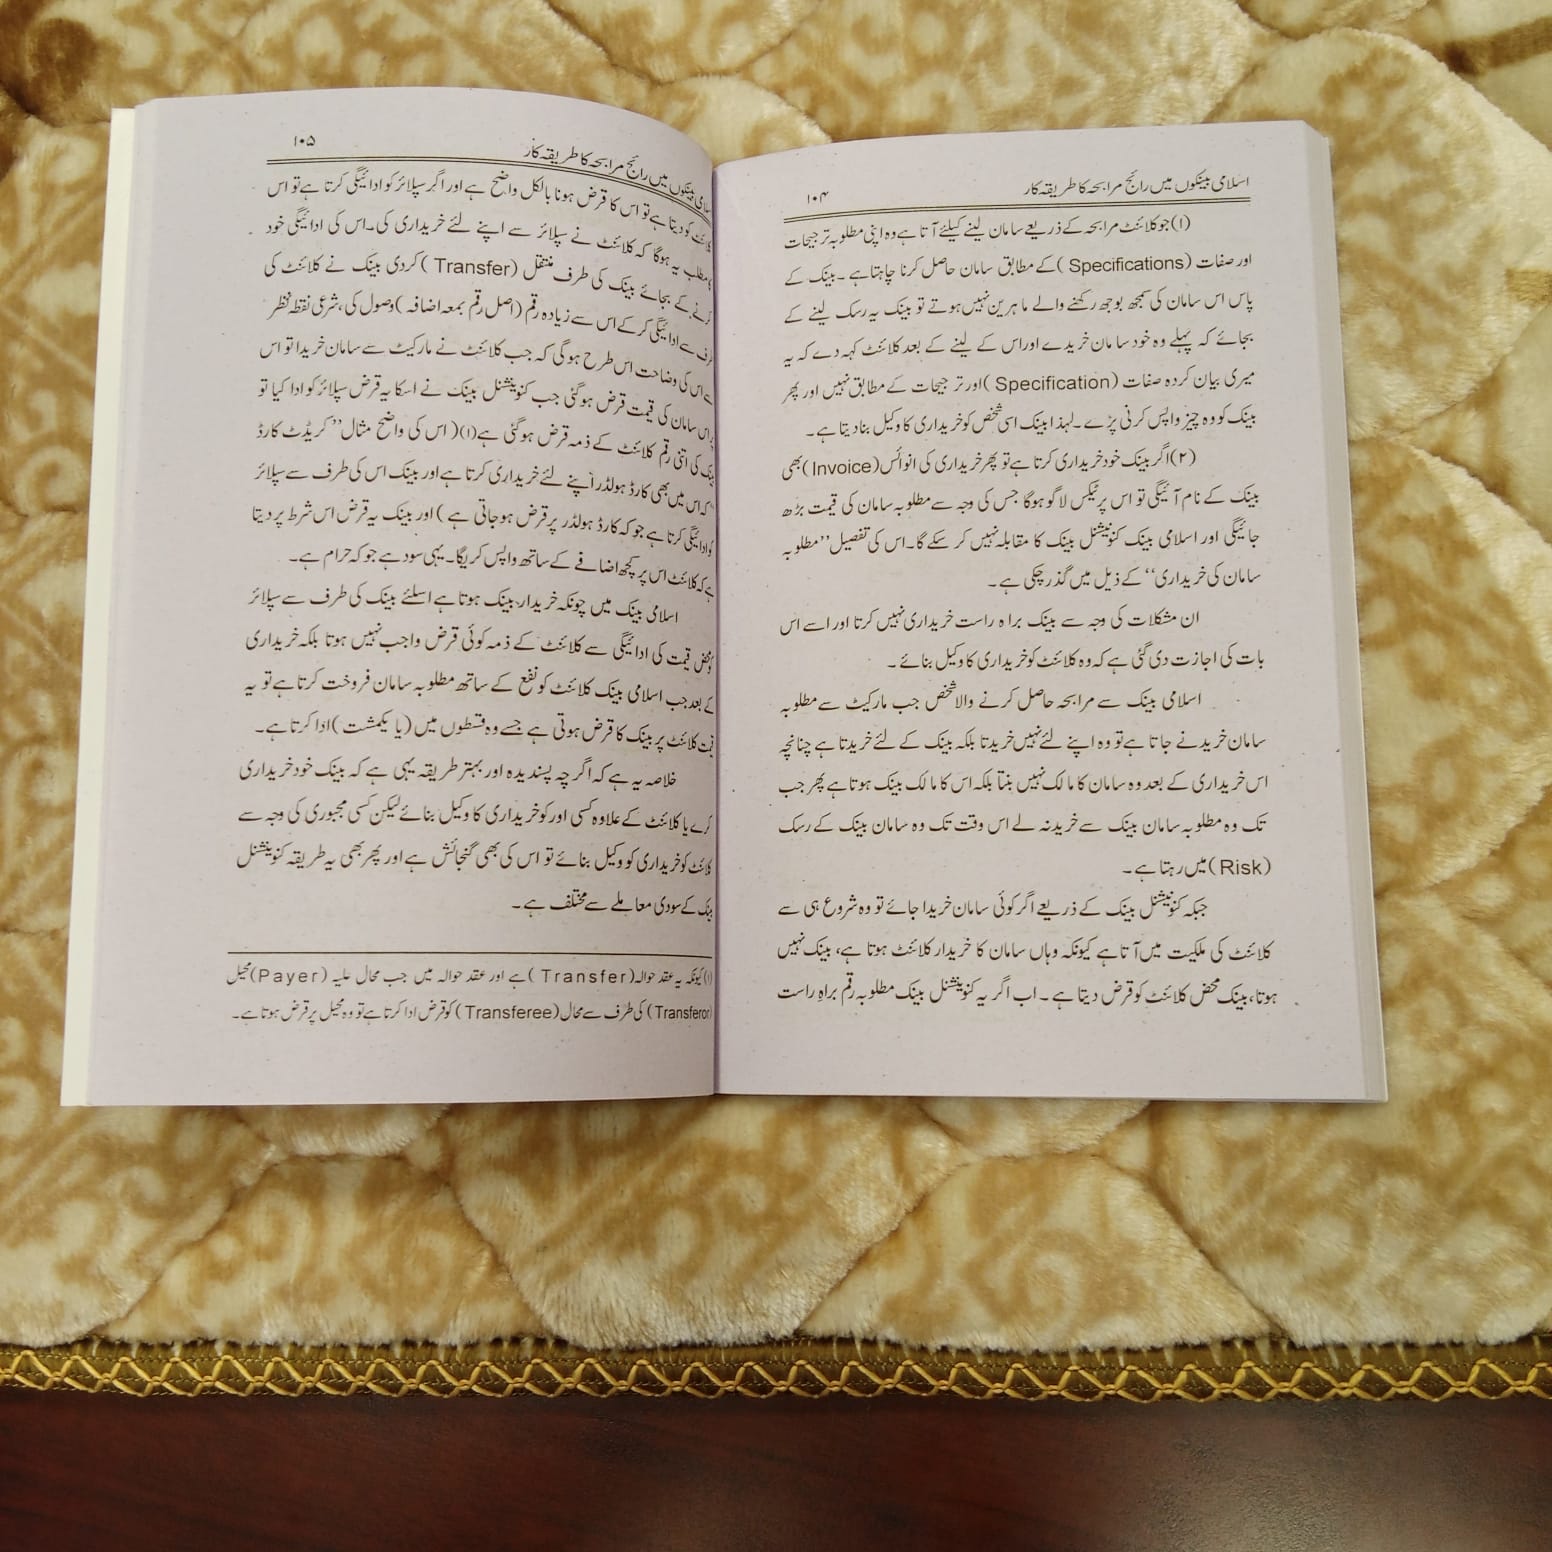 اسلامی بینکوں میں رائج مرابحہ کا طریقہ کار ۱۰۴
(۱) جو کلائنٹ مرابحہ کے ذریعے سامان لینے کیلئے آتا ہے وہ اپنی مطلوبہ ترجیحات
اور صفات (Specifications) کے مطابق سامان حاصل کرنا چاہتا ہے ۔ بینک کے
پاس اس سامان کی سمجھ بوجھ رکھنے والے ماہرین نہیں ہوتے تو بینک یہ رسک لینے کے
بجائے کہ پہلے وہ خود سامان خریدے اور اس کے لینے کے بعد کلائنٹ کہہ دے کہ یہ
میری بیان کردہ صفات (Specification) اور ترجیحات کے مطابق نہیں اور پھر
بینک کو وہ چیز واپس کرنی پڑے ۔ لہذا بینک اسی شخص کو خریداری کا وکیل بنا دیتا ہے ۔
(۲) اگر بینک خود خریداری کرتا ہے تو پھر خریداری کی انوائس (Invoice) بھی
بینک کے نام آئیگی تو اس پر ٹیکس لاگو ہوگا جس کی وجہ سے مطلوبہ سامان کی قیمت بڑھ
جائیگی اور اسلامی بینک کنونیشنل بینک کا مقابلہ نہیں کر سکے گا۔ اس کی تفصیل ’’مطلوبہ
سامان کی خریداری‘‘ کے ذیل میں گذر چکی ہے ۔
ان مشکلات کی وجہ سے بینک براہ راست خریداری نہیں کرتا اور اسے اس
بات کی اجازت دی گئی ہے کہ وہ کلائنٹ کو خریداری کا وکیل بنائے ۔
اسلامی بینک سے مرابحہ حاصل کرنے والا شخص جب مارکیٹ سے مطلوبہ
سامان خریدنے جاتا ہے تو وہ اپنے لئے نہیں خریدتا بلکہ بینک کے لئے خریدتا ہے چنانچہ
اس خریداری کے بعد وہ سامان کا مالک نہیں بنتا بلکہ اس کا مالک بینک ہوتا ہے پھر جب
تک وہ مطلوبہ سامان بینک سے خرید نہ لے اس وقت تک وہ سامان بینک کے رسک
(Risk) میں رہتا ہے ۔
جبکہ کنونیشنل بینک کے ذریعے اگر کوئی سامان خریدا جائے تو وہ شروع ہی سے
کلائنٹ کی ملکیت میں آتا ہے کیونکہ وہاں سامان کا خریدار کلائنٹ ہوتا ہے، بینک نہیں
ہوتا، بینک محض کلائنٹ کو قرض دیتا ہے ۔ اب اگر یہ کنونیشنل بینک مطلوبہ رقم براہ راست
اسلامی بینکوں میں رائج مرابحہ کا طریقہ کار ۱۰۵
کلائنٹ کو دیتا ہے تو اس کا قرض ہونا بالکل واضح ہے اور اگر سپلائر کو ادائیگی کرتا ہے تو اس
کا مطلب یہ ہوگا کہ کلائنٹ نے سپلائر سے اپنے لئے خریداری کی۔ اس کی ادائیگی خود
کرنے کے بجائے بینک کی طرف منتقل (Transfer) کردی بینک نے کلائنٹ کی
طرف سے ادائیگی کر کے اس سے زیادہ رقم (اصل رقم بمعہ اضافہ) وصول کی، شرعی نقطۂ نظر
سے اس کی وضاحت اس طرح ہوگی کہ جب کلائنٹ نے مارکیٹ سے سامان خریدا تو اس
پر اس سامان کی قیمت قرض ہوگئی جب کنونیشنل بینک نے اسکا یہ قرض سپلائر کو ادا کیا تو
بینک کی اتنی رقم کلائنٹ کے ذمہ قرض ہوگئی ہے (۱) (اس کی واضح مثال ’’کریڈٹ کارڈ
کہ اس میں بھی کارڈ ہولڈر اپنے لئے خریداری کرتا ہے اور بینک اس کی طرف سے سپلائر
کو ادائیگی کرتا ہے جو کہ کارڈ ہولڈر پر قرض ہوجاتی ہے) اور بینک یہ قرض اس شرط پر دیتا
ہے کہ کلائنٹ اس پر کچھ اضافے کے ساتھ واپس کریگا۔ یہی سود ہے جو کہ حرام ہے ۔
اسلامی بینک میں چونکہ خریدار، بینک ہوتا ہے اسلئے بینک کی طرف سے سپلائر
کو محض قیمت کی ادائیگی سے کلائنٹ کے ذمہ کوئی قرض واجب نہیں ہوتا بلکہ خریداری
کے بعد جب اسلامی بینک کلائنٹ کو نفع کے ساتھ مطلوبہ سامان فروخت کرتا ہے تو یہ
قیمت کلائنٹ پر بینک کا قرض ہوتی ہے جسے وہ قسطوں میں (یا یکمشت) ادا کرتا ہے ۔
خلاصہ یہ ہے کہ اگر چہ پسندیدہ اور بہتر طریقہ یہی ہے کہ بینک خود خریداری
کرے یا کلائنٹ کے علاوہ کسی اور کو خریداری کا وکیل بنائے لیکن کسی مجبوری کی وجہ سے
کلائنٹ کو خریداری کو وکیل بنائے تو اس کی بھی گنجائش ہے اور پھر بھی یہ طریقہ کنونیشنل
بینک کے سودی معاملے سے مختلف ہے ۔
(۱) کیونکہ یہ عقد حوالہ (Transfer) ہے اور عقد حوالہ میں جب محال علیہ (Payer) محیل
(Transferor) کی طرف سے محال (Transferee) کو قرض ادا کرتا ہے تو وہ محیل پر قرض ہوتا ہے ۔